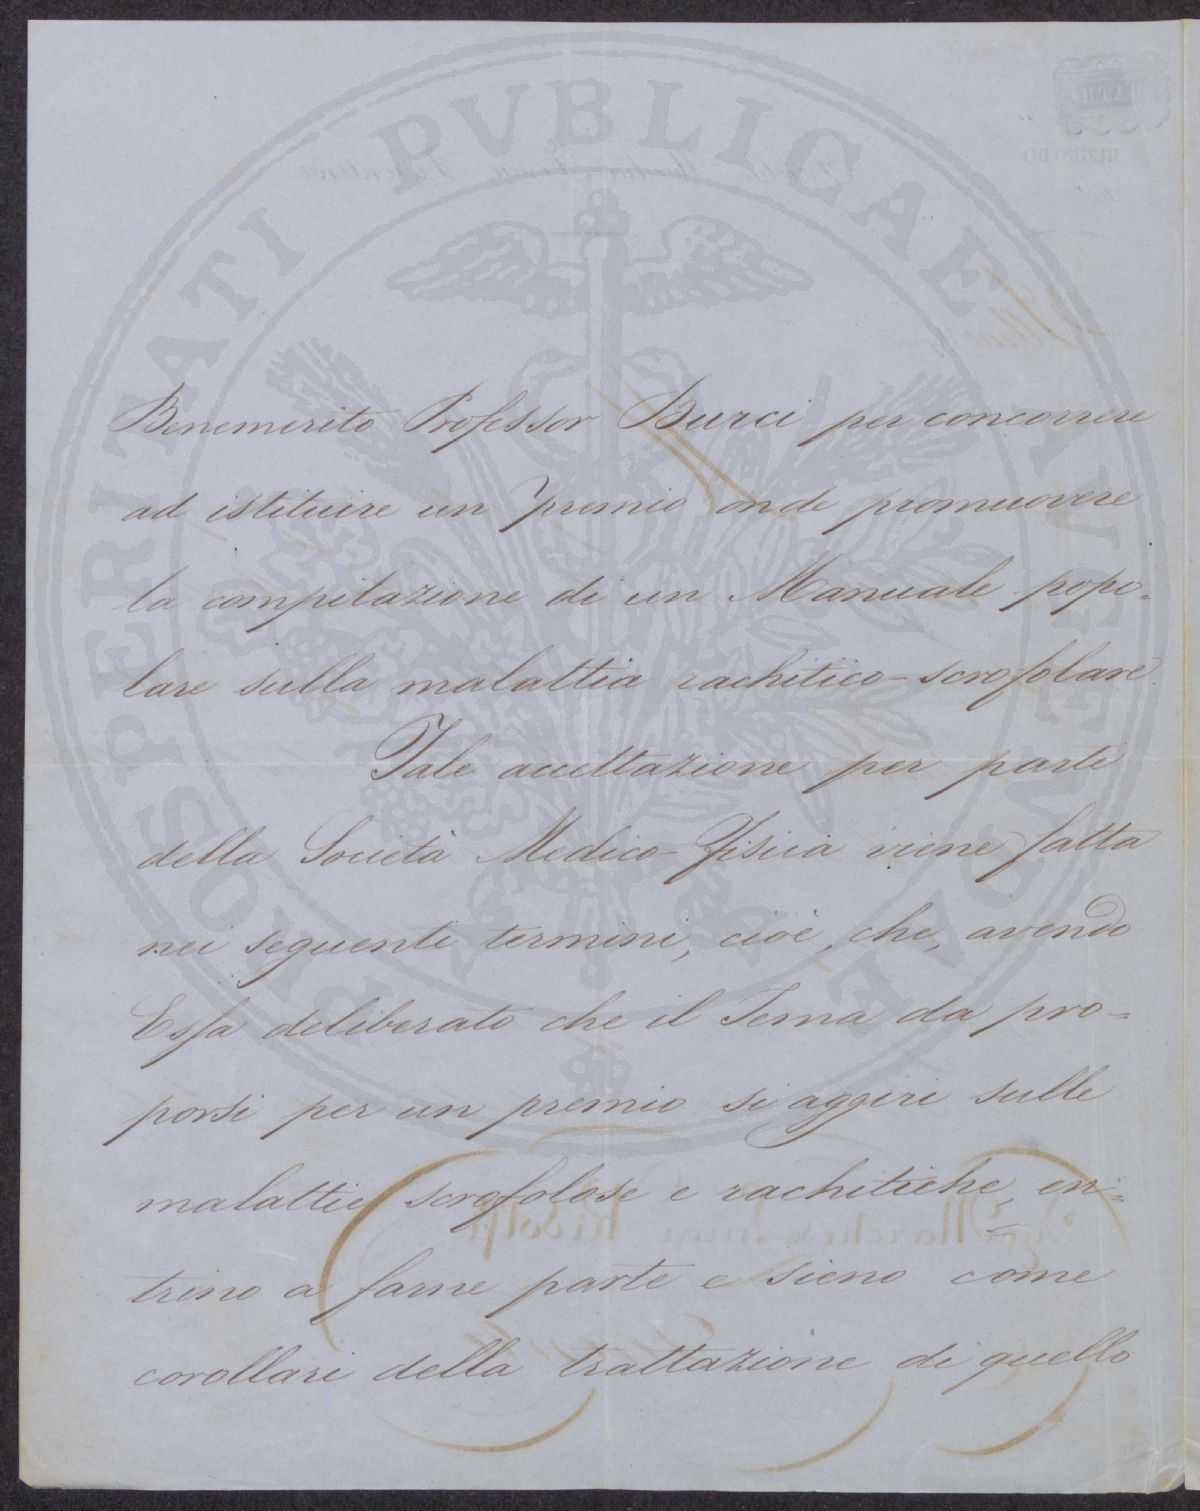 Benemerito Professor Burci per concorrere
ad istituire un premio onde promuovere
la compilazione di un Manuale popo=
lare sulla malattia rachitico-scrofolare.
Tale accettazione per parte
della Società Medico-Fisica viene fatta
nei seguenti termini, cioè, che, avendo
Essa deliberato che il Tema da pro=
porsi per un premio si aggiri sulle
malattie scrofolose e rachitiche, en=
trino a farne parte e sieno come
corollari della trattazione di quello
PROSPERITATI PVBLICAE AVGENDAE